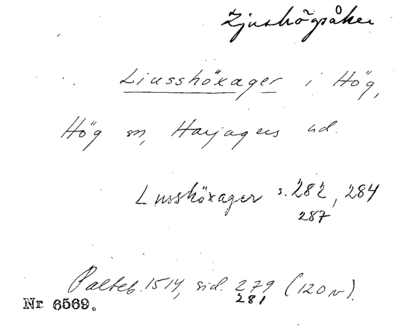 Ljushögsåker
Liusshöxager i Hög,
Hög sn, Harjagers hd.
Lusshöxager s. 282, 284
287
Palteb. 1514, sid. 279 (120 v).
281
Nr 6569.